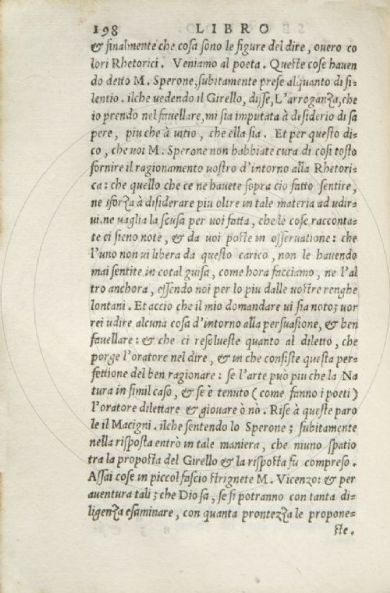 198 LIBRO
& finalmente che cosa sono le figure del dire, overo co
lori Rhetorici. Veniamo al poeta. Queste cose haven
do detto M. Sperone, subitamente prese alquanto di si-
lentio. ilche vedendo il Girello, disse, L'arroganza, che
io prendo nel favellare, mi sia imputata à disiderio di sa
pere, piu che à vitio, che ella sia. Et per questo di-
co, che voi M. Sperone non habbiate cura di cosi tosto
fornire il ragionamento vostro d'intorno alla Rhetori-
ca: che quello che ce ne havete sopra cio fatto sentire,
ne sforza à disiderare piu oltre in tale materia ad udir-
vi. ne vaglia la scusa per voi fatta, che le cose racconta-
te ci sieno note, & da voi poste in osservatione: che
l'uno non vi libera da questo carico, non le havendo
mai sentite in cotal guisa, come hora facciamo, ne l'al
tro anchora, essendo noi per lo piu dalle vostre renghe
lontani. Et accio che il mio domandare vi sia noto; vor
rei udire alcuna cosa d'intorno alla persuasione, & ben
favellare: & che ci resolveste quanto al diletto, che
porge l'oratore nel dire, & in che consiste questa per-
fettione del ben ragionare: se l'arte può piu che la Na
tura in simil caso, & se è tenuto (come fanno i poeti)
l'oratore dilettare & giovare ò nò. Rise à queste paro
le il Macigni. ilche sentendo lo Sperone; subitamente
nella risposta entrò in tale maniera, che niuno spatio
tra la proposta del Girello & la risposta fù compreso.
Assai cose in picciol fascio strignete M. Vicenzo: & per
aventura tali; che Dio sa, se si potranno con tanta di-
ligenza esaminare, con quanta prontezza le propone-
ste.